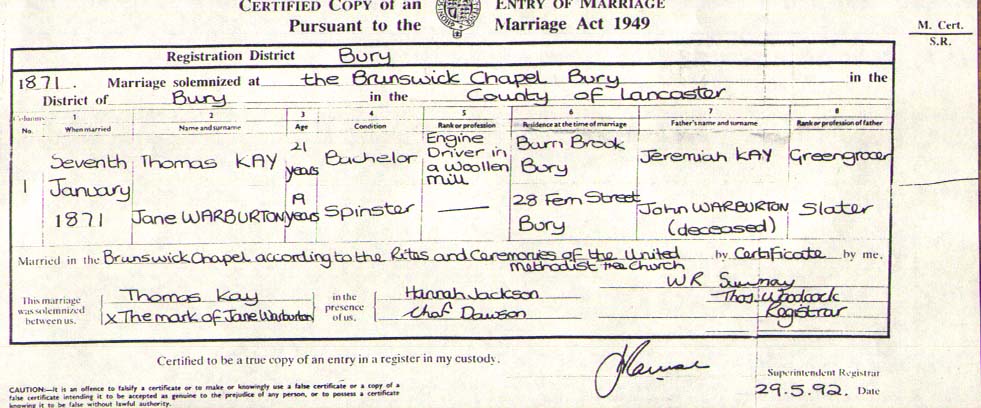 CERTIFIED COPY of an ENTRY OF MARRIAGE
Pursuant to the Marriage Act 1949
M. Cert.
S.R.
Registration District Bury
1871. Marriage solemnized at the Brunswick Chapel Bury in the
District of Bury in the County of Lancaster
Columns 1 2 3 4 5 6 7 8
No. When married Name and surname Age Condition Rank or profession Residence at the time of marriage Father's name and surname Rank or profession of father
1 Seventh January 1871 Thomas KAY 21 years Bachelor Engine Driver in a Woollen Mill Barn Brook Bury Jeremiah KAY Greengrocer
Jane WARBURTON 19 years Spinster — 28 Fern Street Bury John WARBURTON (deceased) Slater
Married in the Brunswick Chapel according to the Rites and Ceremonies of the United Methodist Free Church by Certificate by me,
This marriage was solemnized between us,
Thomas Kay
X The mark of Jane Warburton
in the presence of us,
Hannah Jackson
Chas Dawson
W R
Thos. Woodcock
Registrar
Certified to be a true copy of an entry in a register in my custody.
Superintendent Registrar
29.5.92. Date
CAUTION:—It is an offence to falsify a certificate or to make or knowingly use a false certificate or a copy of a
false certificate intending it to be accepted as genuine to the prejudice of any person, or to possess a certificate
knowing it to be false without lawful authority.